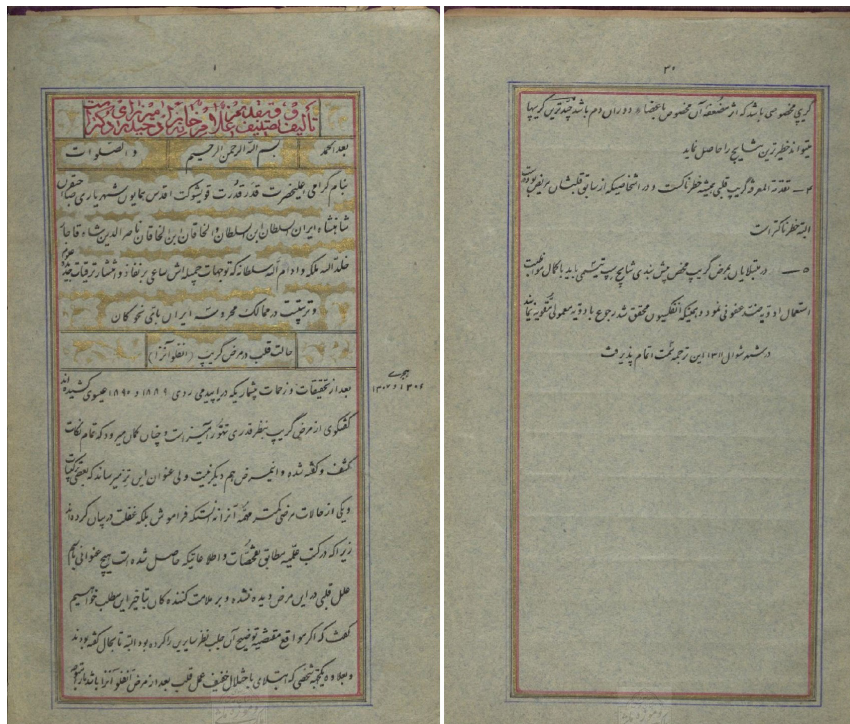 ۱
بعد الحمد
بسم الله الرحمن الرحیم
و الصلوات
بنام گرامی اعلیحضرت قدر قدرت قویشوکت اقدس همایون شهریاری
شاهنشاه ایران السلطان ابن السلطان و الخاقان ابن الخاقان ناصر الدین شاه قاجار
خلد الله ملکه و ادام الله سلطانه که توجهات جمیله‌اش ساعی بر نفاذ و انتشار ترقیات جدیده
و تربیت در ممالک محروسه ایران
حالت قلب در مرض گریپ (انفلوآنزا)
بعد از تحقیقات و زحمات بیشمار یکه در اپیدمی ردی ۱۸۸۹ و ۱۸۹۰ عیسوی کشیده‌اند
هجری
۱۳۰۶ و ۱۳۰۷
گفتگوی از مرض گریپ بنظر قدری تهور آمیز است و چنان گمان میرود که تمام نکات
کشف و گفته شده و اینمرض هم دیگر نیست ولی عنوان این نیز میرساند که بعضی
و یکی از حالات مرضی که فراموش بلکه غفلت در بیان کرده‌اند
زیرا که در کتب علمیه مطابق تفحصات و اطلاعاتیکه حاصل شده است هیچ عنوانی باسم
علل قلبی در این مرض دیده نشده و بر علامت کنندگان تأخیر این مطلب خواهیم
گفت که اگر مواقع مقتضیه توضیح آن جلب نظر سایرین را کرده بود البته تا بحال گفته بودند
و بعلاوه یکجه شخصی که ابتلای باختلال خفیف عمل قلب بعد از مرض آنفلوآنزا باشد
۳۰
گریپ مخصوصی باشد که اثر مضعفه آن مخصوص باعضاء دوران دم باشد چه ترین گریپها
میتواند خطیر ترین نتایج را حاصل نماید
۴ ـ تقدمة المعرفة گریپ قلبی همیشه خطرناکست و در اشخاصیکه از سابق قلبشان مریض بوده
البته خطرناکتر است
۵ ـ در مبتلایان بمرض گریپ محض پیش بندی نتایج باید با کمال مواظبت
استعمال ادویه ضد عفونی نمود و همینکه انفکسیون محقق شد رجوع بادویه معمولی مقویه نمایند
در شهر شوال ۱۳۱۱ این ترجمه سمت اتمام پذیرفت